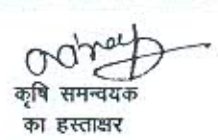 कृषि समन्वयक
का हस्ताक्षर